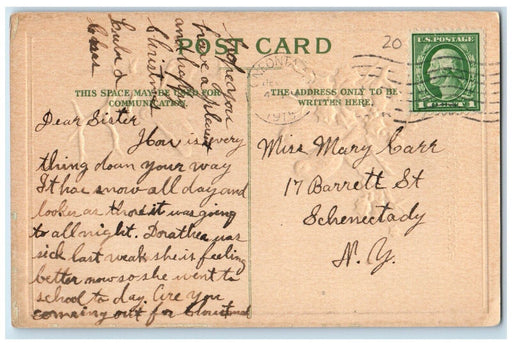 POST CARD
THIS SPACE MAY BE USED FOR
COMMUNICATION.
THE ADDRESS ONLY TO BE
WRITTEN HERE.
20
U.S. POSTAGE
1 CENT 1
Dear Sister
How is every
thing down your way
It has snow all day and
looks as tho it was going
to all night. Dorathea was
sick last weak she is feeling
better now so she went to
school to day. Are you
comeing out for Christmas
hope you
have a pleasant
and happy
Christmas
Lulu &
Chas
Miss Mary Carr
17 Barrett St
Schenectady
N.Y.